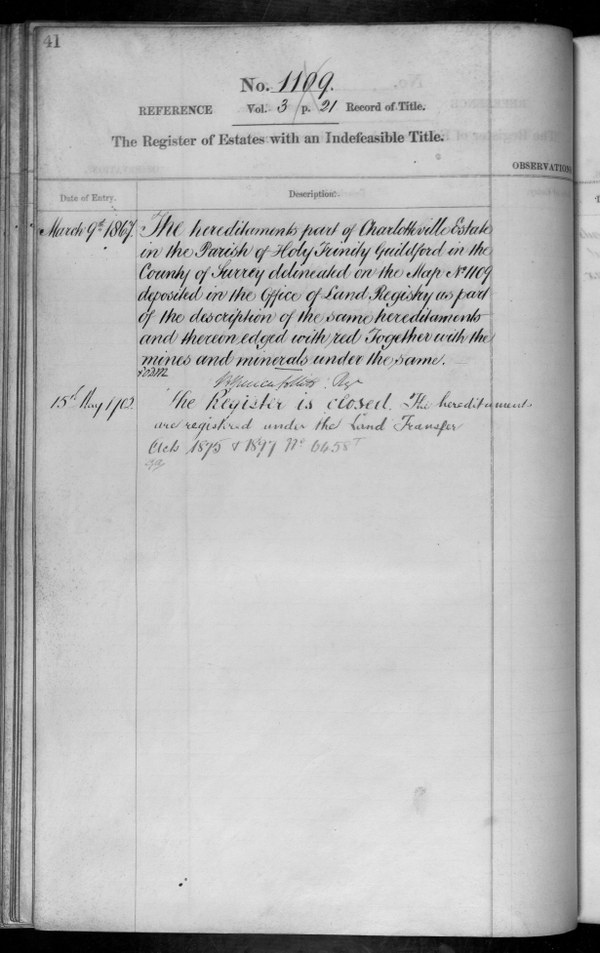 41
No. 1109.
REFERENCE Vol. 3 p. 21 Record of Title.
The Register of Estates with an Indefeasible Title.
OBSERVATION
Date of Entry.
Description.
March 9th 1867.
The hereditaments part of Charlotteville Estate
in the Parish of Holy Trinity Guildford in the
County of Surrey delineated on the Map No 1109
deposited in the Office of Land Registry as part
of the description of the same hereditaments
and thereon edged with red Together with the
mines and minerals under the same.
Regr
15th May 1902.
The Register is closed. The hereditaments
are registered under the Land Transfer
Acts 1875 & 1897 No 6458